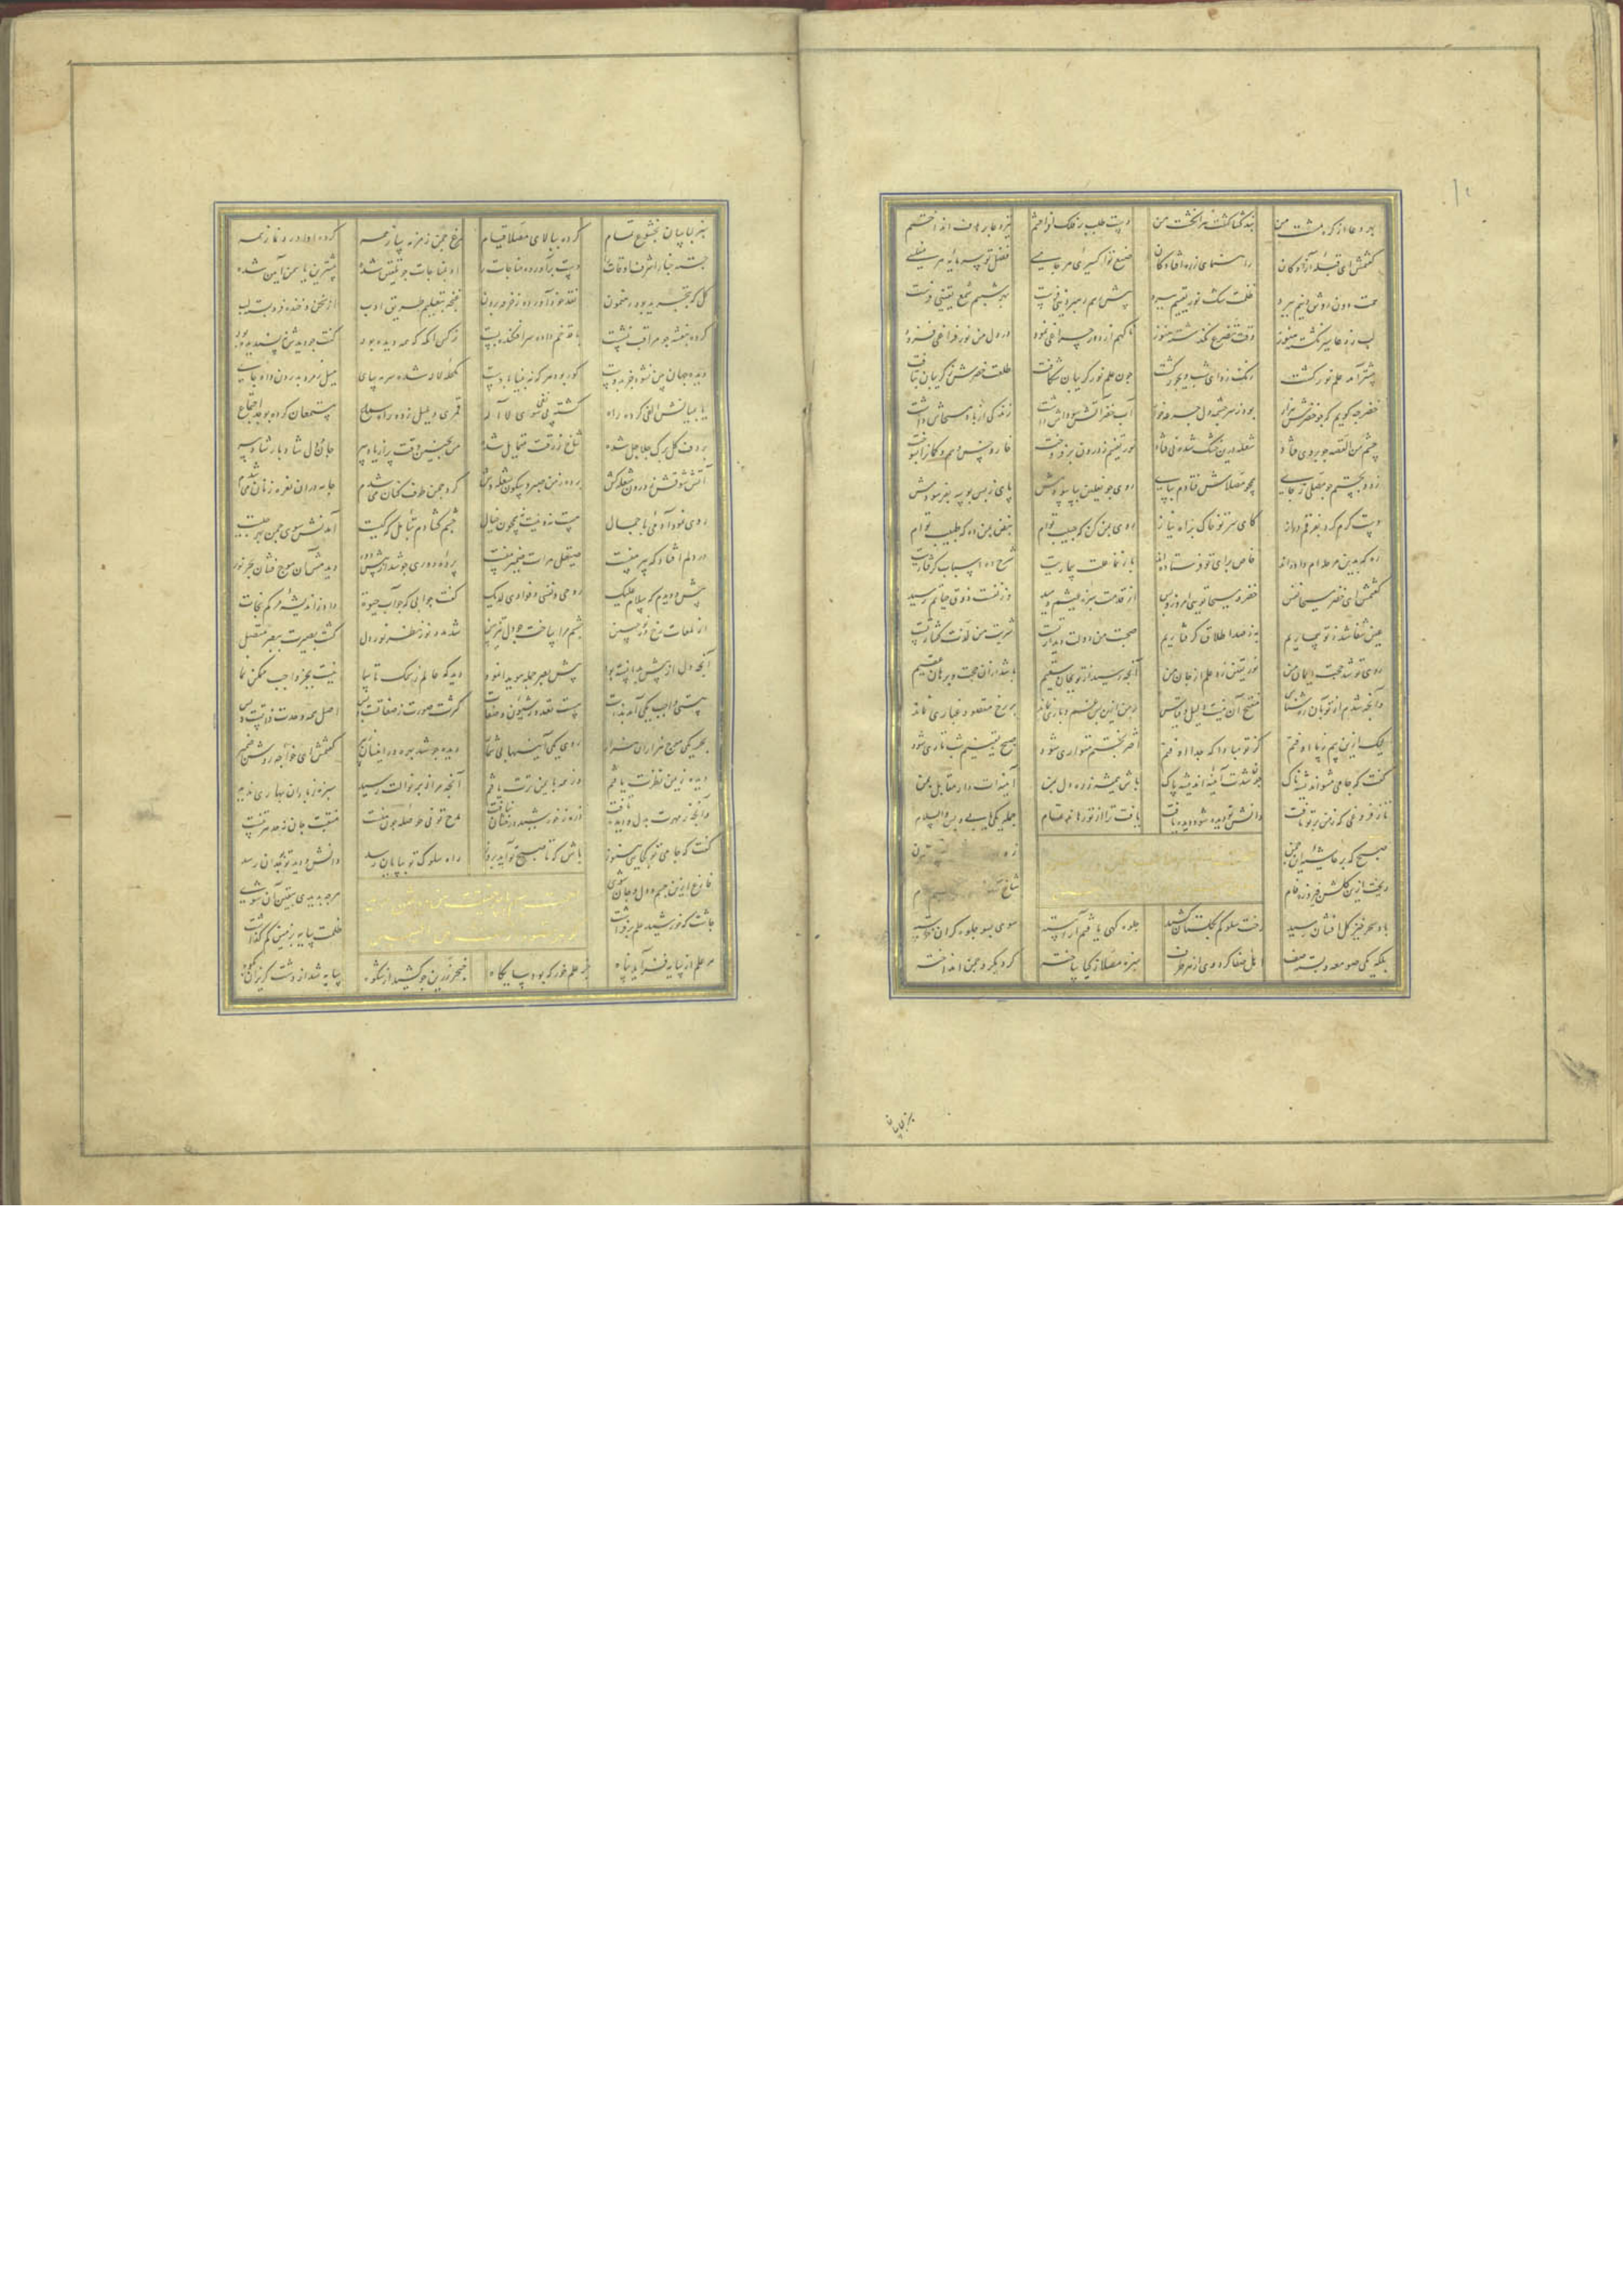 بود دعا از کره مشت من بند گشا گشت سر انگشت من دست طلب بر فلک افراختم تیر دعا بر هدف انداختم
گفتمش ای قبله آزادگان راه نمای ز ره افتادگان تو اکسیری هر جا مسی فضل تو سرمایه هر مفلسی
همت دون روشنیم ببرد ظلمت شک نور یقینم ببرد پیش رهم رهبر دینی فرست بهر شبم شمع یقینی فرست
لب ز دعا سیر نگشته هنوز وقت تضرع نگذشته هنوز ناگهم از دور چراغی نمود در دل من نور فراغی فزود
پیشتر آمد علم نور گشت رنگ زدای شب دیجور گشت چون علم نور گریبان شکافت طلعت خضرش ز گریبان بتافت
خضر چه گویم که چو خضرش هزار بود ز سرچشمه دل جرعه خوار آب خضر آتش سوداش داشت زندگی از باد مسیحاش داشت
چشم من القصه چو بر وی فتاد شعله درین خشک شده نی فتاد نور یقینم ز درون برفروخت خار و خس وهم و گمانرا بسوخت
زود بجستم چو مصلی ز جای همچو مصلاش فتادم بپای روی چو نعلین بپا سودمش پای ز بس بوسه بفرسودمش
دست کرم کرد بفرقم دراز کای سر تو خاک براه نیاز روی بمن کن که حبیب توام نبض بمن ده که طبیب توام
ره که بدین مرحله ام داده اند خاص برای تو فرستاده اند باز نما علت بیماریت شرح ده اسباب گرفتاریت
گفتمش ای خضر مسیحا نفس خضر و مسیحا تویی امروز و بس از قدمت سبزه عیشم دمید وز نفست ذوق حیاتم رسید
عین شفا شد ز تو بیماریم به ز صد اطلاق گرفتاریم صحت من دولت دیدار تست شربت من لذت گفتار تست
روی تو شد حجت ایمان من نور یقین زد علم از جان من آنچه رسید از تو بجان سقیم باشد ازان حجت و برهان عقیم
وآنچه شدم از تو بآن روشناس منتج آن نیست دلیل و قیاس بر من ازین پس غم و باری نماند بر رخ مقصود غباری نماند
لیک ازین بیم ز پا اوفتم کز تو مبادا که جدا اوفتم اختر بختم متواری شود صبح یقینم شب تاری شود
گفت که جامی مشو اندیشه ناک چون شدت آیینه اندیشه پاک باش همیشه ز ره دل بمن آینه ات دار مقابل بمن
تا ز فروغی که ز من بر تو تافت دانش تو دیده شود دیده یافت یافت ترا از تو رهاند تمام جمله یکی یابی و بس والسلام
صبح که بر حاشیه این چمن
ریخت ازین گلشن فیروزه فام شاخ
باد سحر خیز گل افشان رسید رخت سلوکم بگلستان کشید جلوه گهی یافتم آراسته سوی بسو جلوه گران
بلکه یکی صومعه در بسته صف اهل صفا کرده وی از هر طرف سبزه مصلا ز گیا گرد بگرد چمن انداخته
بخشوع تمام کرده ببالای مصلا قیام مرغ چمن زمزمه ساز همه کرده ادا ورد و نماز همه
جسته چنار اشرف اوقات را دست برآورده مناجات را او بمناجات چو تلقین شده پیشترین یاسمن آمین شده
گل که بتجرید بود رهنمون نقد خود آورده ز خرقه برون غنچه بتعلیم طریق ادب از سخن و خنده فرو بسته لب
کرده بنفشه چو مراقب نشست با قد خم داده سر افکنده پست نرگس از آنکه که همه دیده بود گفت چو دیدش پسندیده بود
دیده جهان چون نشود خود پرست کور بود هر که نه بینا بدست لاله شده سر بپای میل زمرد بدرون داد جای
یا بمیانش الفی کرده راه گشته پی نفی سوی لا اله قمری و بلبل زده راه سماع مستمعان کرده بوجد اجتماع
بر دف گل برگ جلاجل شده شاخ ز رقت متمایل شده من بچنین وقت پر از یاد پیر جان و دل شاد
آتش شوقش ز درون شعله کش برده ز من صبر و سکون شعله وش گرد چمن طوف کنان می شدم جامه دران نعره زنان می شدم
روی نمود آدمی با جمال مست نه و نیست همچون خیال چشم گشادم بتأمل که کیست آمدنش سوی چمن بهر چیست
در دلم افتاد که پیر منست صیقل مرآت ضمیر منست پرده دوری چو شد از پیش دور دیدمش آن موج فشان بحر نور
پیش دویدم که سلام علیک روحی و نفسی و فؤادی لدیک گفت جوابی که چو آب حیوة داد ز اندیشه مرگم نجات
از لمعات رخ و نور جبین چشم مرا ساخت چو دل تیز بین شد مدد نور نظر نور دل گشت بصیرت ببصر متصل
آنچه دل از پیش بدانست بود پیش بصر جمله هویدا نمود دید که عالم ز سمک تا سما نیست بجز واجب ممکن نما
هستی واجب یکی آمد بذات هست تعدد ز شئون و صفات کثرت صورت ز صفاتست و بس اصل همه وحدت ذاتست و بس
بحر یکی موج هزاران هزار روی یکی آینه‌ها بی شمار دیده چو شد بهره ور از فیض پیر گفتمش ای خواجه روشن ضمیر
دیده ز یمن نظرت یافتم وز همه با یمن ترت یافتم آنچه مرا از نوالت رسید سبزه ز باران بهاری ندید
وآنچه ز مهرت بدل و دیده تافت ذره ز خورشید درخشان نیافت مدح تو نی حوصله چون منست منقبت جان نه حد هر تنست
گفت که جامی تو کجایی هنوز باش که تا صبح تو آید بروز راه سلوک تو بپایان رسد دانش و دید تو بجدان رسد
فارغ ازین جسم و دل و جان شوی هر چه بدیدی بیقین آن شوی
چاشت که خورشید علم برفراشت ظلمت سایه بزمین کم گذاشت
هر علم از پایه فتر آید پناه جز علم خور که بود پایگاه خنجر زرین چو کشید از شکوه سایه شد از دشت گریزان بکوه